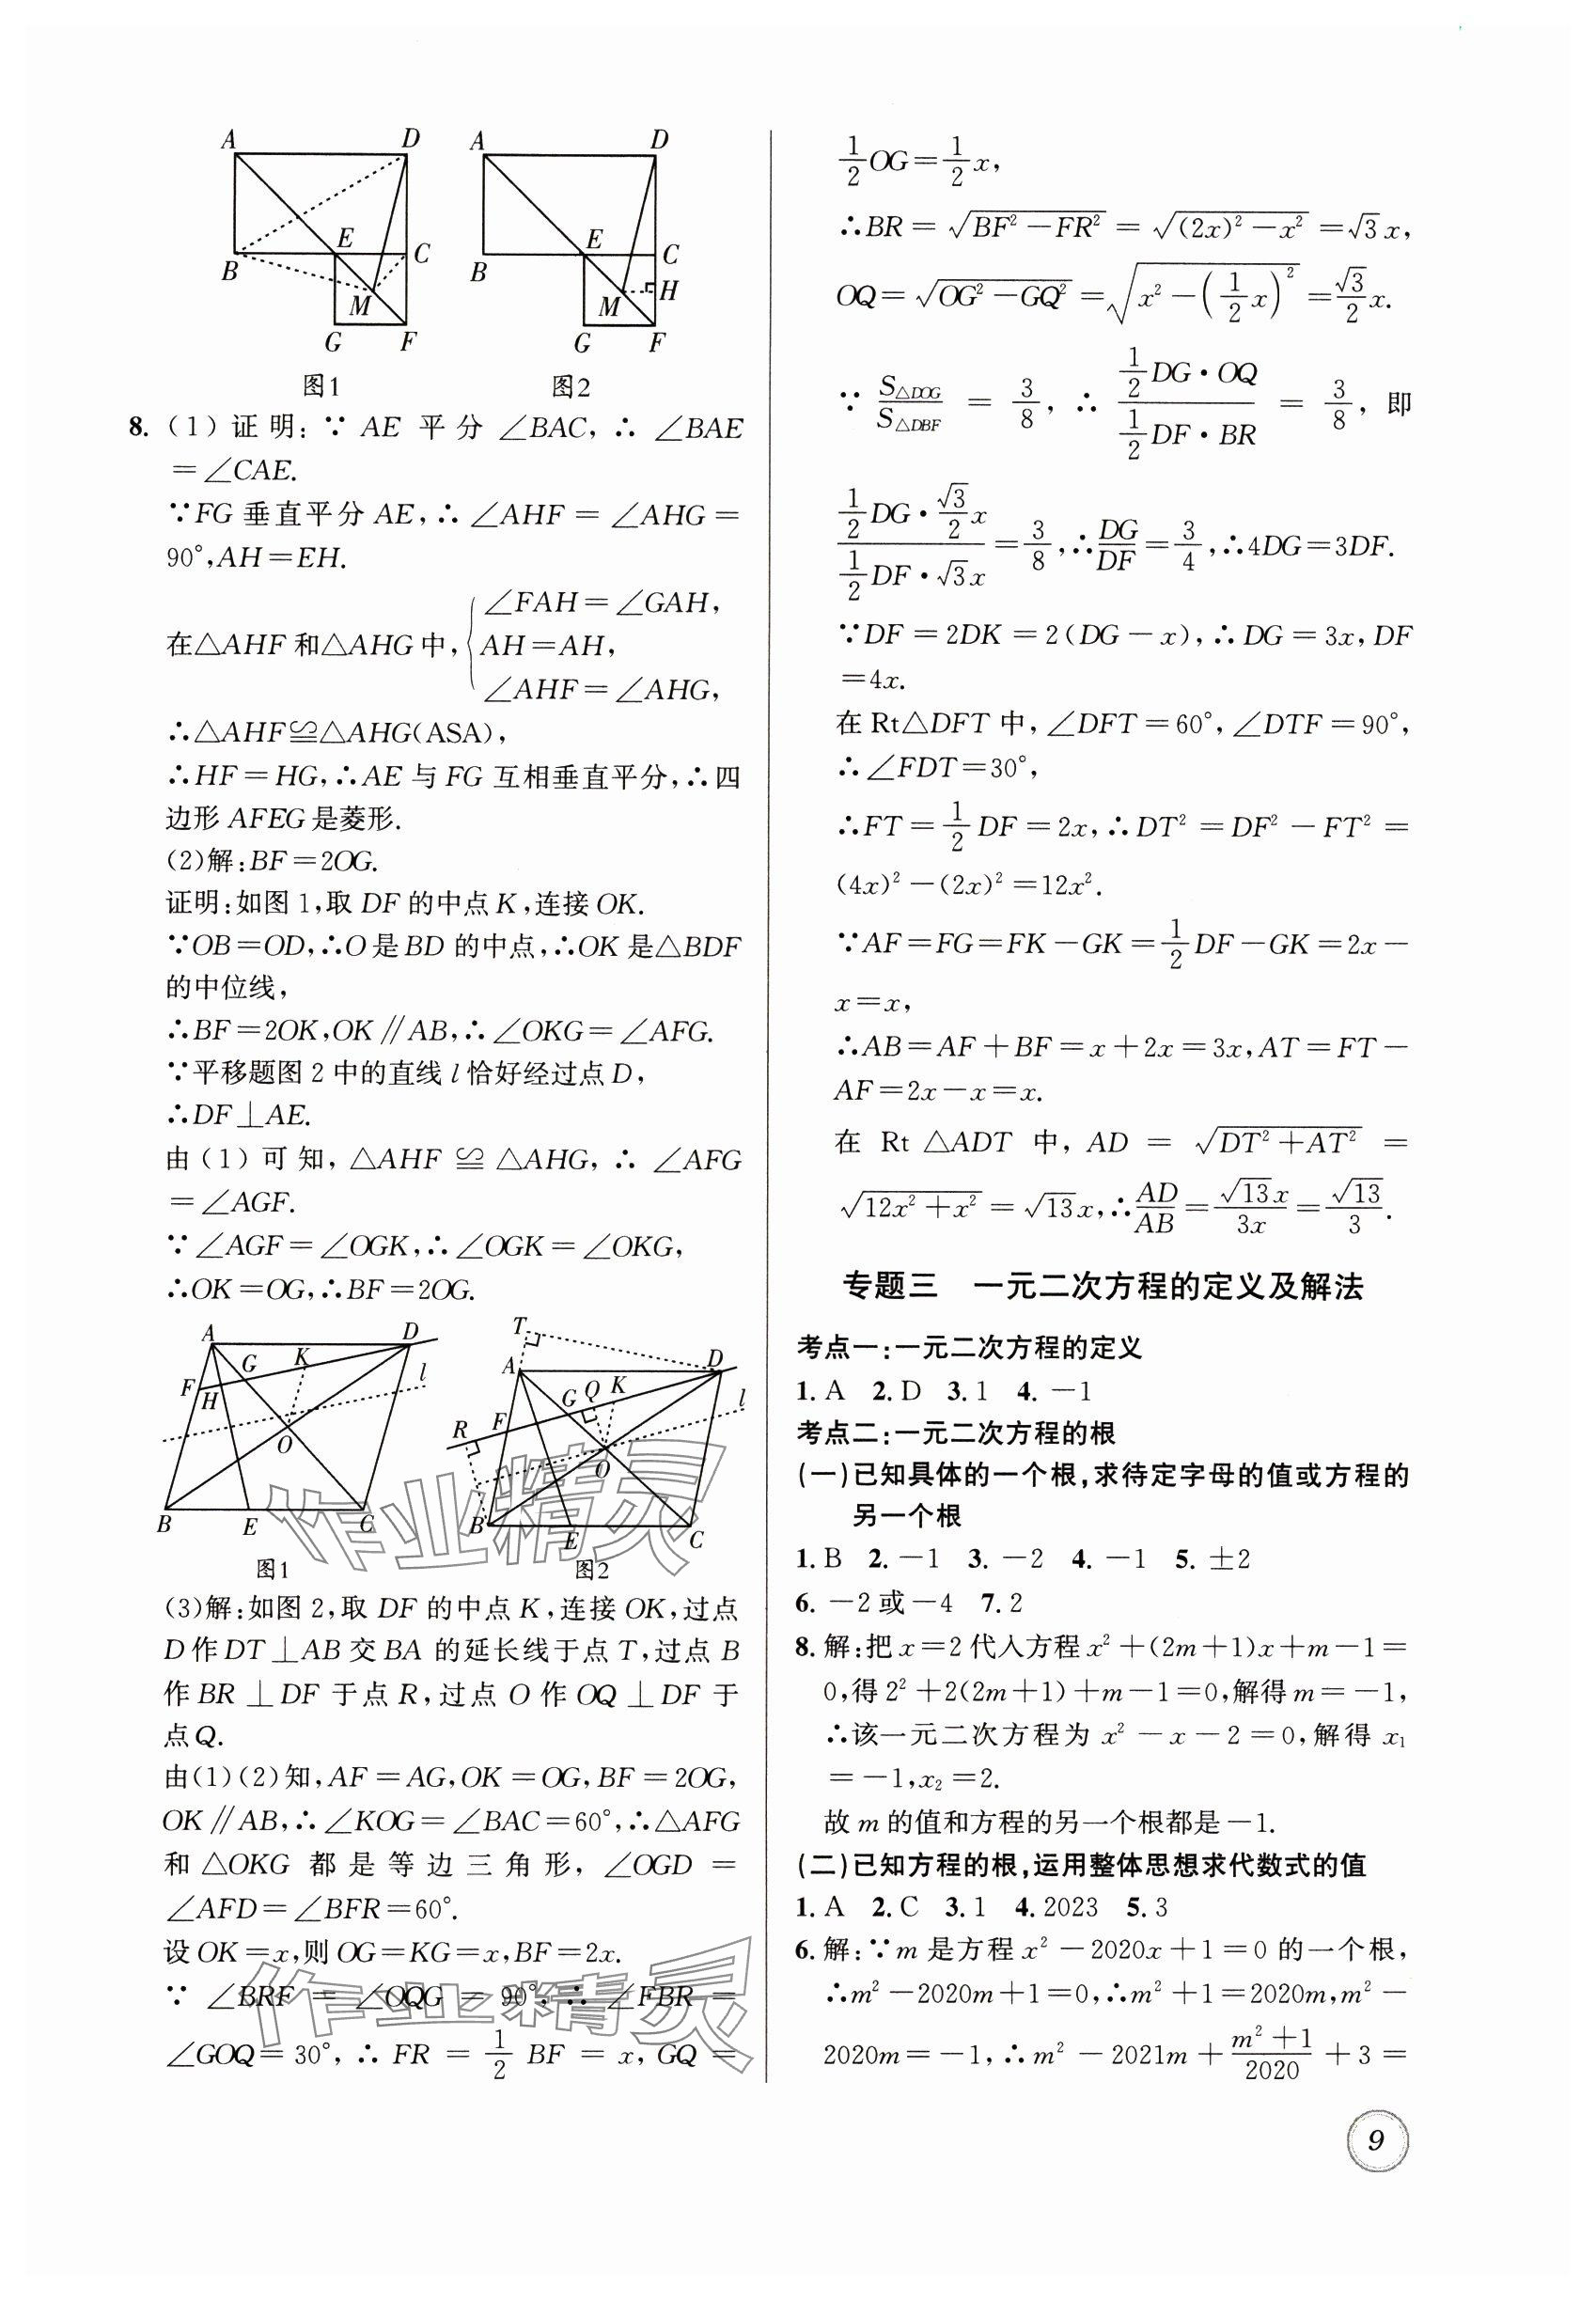 A D A D
E C E C
B B
M M H
G F G F
图1 图2
8. (1) 证明: ∵ AE 平分 ∠BAC, ∴ ∠BAE
=∠CAE.
∵FG 垂直平分 AE, ∴ ∠AHF = ∠AHG =
90°, AH=EH.
在△AHF 和△AHG 中, { ∠FAH=∠GAH,
AH=AH,
∠AHF=∠AHG,
∴△AHF≌△AHG(ASA),
∴HF=HG, ∴AE 与 FG 互相垂直平分, ∴四
边形 AFEG 是菱形.
(2)解:BF=2OG.
证明:如图 1,取 DF 的中点 K,连接 OK.
∵OB=OD, ∴O 是 BD 的中点, ∴OK 是△BDF
的中位线,
∴BF=2OK, OK∥AB, ∴∠OKG=∠AFG.
∵平移题图 2 中的直线 l 恰好经过点 D,
∴DF⊥AE.
由 (1) 可知, △AHF ≌ △AHG, ∴ ∠AFG
=∠AGF.
∵∠AGF=∠OGK, ∴∠OGK=∠OKG,
∴OK=OG, ∴BF=2OG.
A D T
G K A D
F H l G Q K l
R F
O O
B E C B E C
图1 图2
(3)解:如图 2,取 DF 的中点 K,连接 OK,过点
D 作 DT⊥AB 交 BA 的延长线于点 T,过点 B
作 BR ⊥ DF 于点 R,过点 O 作 OQ ⊥ DF 于
点 Q.
由(1)(2)知, AF=AG, OK=OG, BF=2OG,
OK∥AB, ∴∠KOG=∠BAC=60°, ∴△AFG
和 △OKG 都是等边三角形, ∠OGD =
∠AFD=∠BFR=60°.
设 OK=x,则 OG=KG=x, BF=2x.
∵ ∠BRF = ∠OQG = 90°, ∴ ∠FBR =
∠GOQ=30°, ∴ FR = 1/2 BF = x, GQ =
1/2 OG=1/2 x,
∴BR=√(BF²-FR²)=√((2x)²-x²)=√3 x,
OQ=√(OG²-GQ²)=√(x²-(1/2 x)²)=√3/2 x.
∵ S△DOG/S△DBF = 3/8, ∴ (1/2 DG·OQ)/(1/2 DF·BR) = 3/8, 即
(1/2 DG·√3/2 x)/(1/2 DF·√3 x)=3/8, ∴DG/DF=3/4, ∴4DG=3DF.
∵DF=2DK=2(DG-x), ∴DG=3x, DF
=4x.
在 Rt△DFT 中, ∠DFT=60°, ∠DTF=90°,
∴∠FDT=30°,
∴FT=1/2 DF=2x, ∴DT²=DF²-FT²=
(4x)²-(2x)²=12x².
∵AF=FG=FK-GK=1/2 DF-GK=2x-
x=x,
∴AB=AF+BF=x+2x=3x, AT=FT-
AF=2x-x=x.
在 Rt △ADT 中, AD = √(DT²+AT²) =
√(12x²+x²)=√13 x, ∴AD/AB=√13 x/3x=√13/3.
专题三 一元二次方程的定义及解法
考点一:一元二次方程的定义
1. A 2. D 3. 1 4. -1
考点二:一元二次方程的根
(一)已知具体的一个根,求待定字母的值或方程的
另一个根
1. B 2. -1 3. -2 4. -1 5. ±2
6. -2 或-4 7. 2
8. 解:把 x=2 代入方程 x²+(2m+1)x+m-1=
0,得 2²+2(2m+1)+m-1=0,解得 m=-1,
∴该一元二次方程为 x²-x-2=0,解得 x₁
=-1, x₂=2.
故 m 的值和方程的另一个根都是-1.
(二)已知方程的根,运用整体思想求代数式的值
1. A 2. C 3. 1 4. 2023 5. 3
6. 解: ∵m 是方程 x²-2020x+1=0 的一个根,
∴m²-2020m+1=0, ∴m²+1=2020m, m²-
2020m=-1, ∴m²-2021m+(m²+1)/2020+3=
9
作业精灵
作业精灵